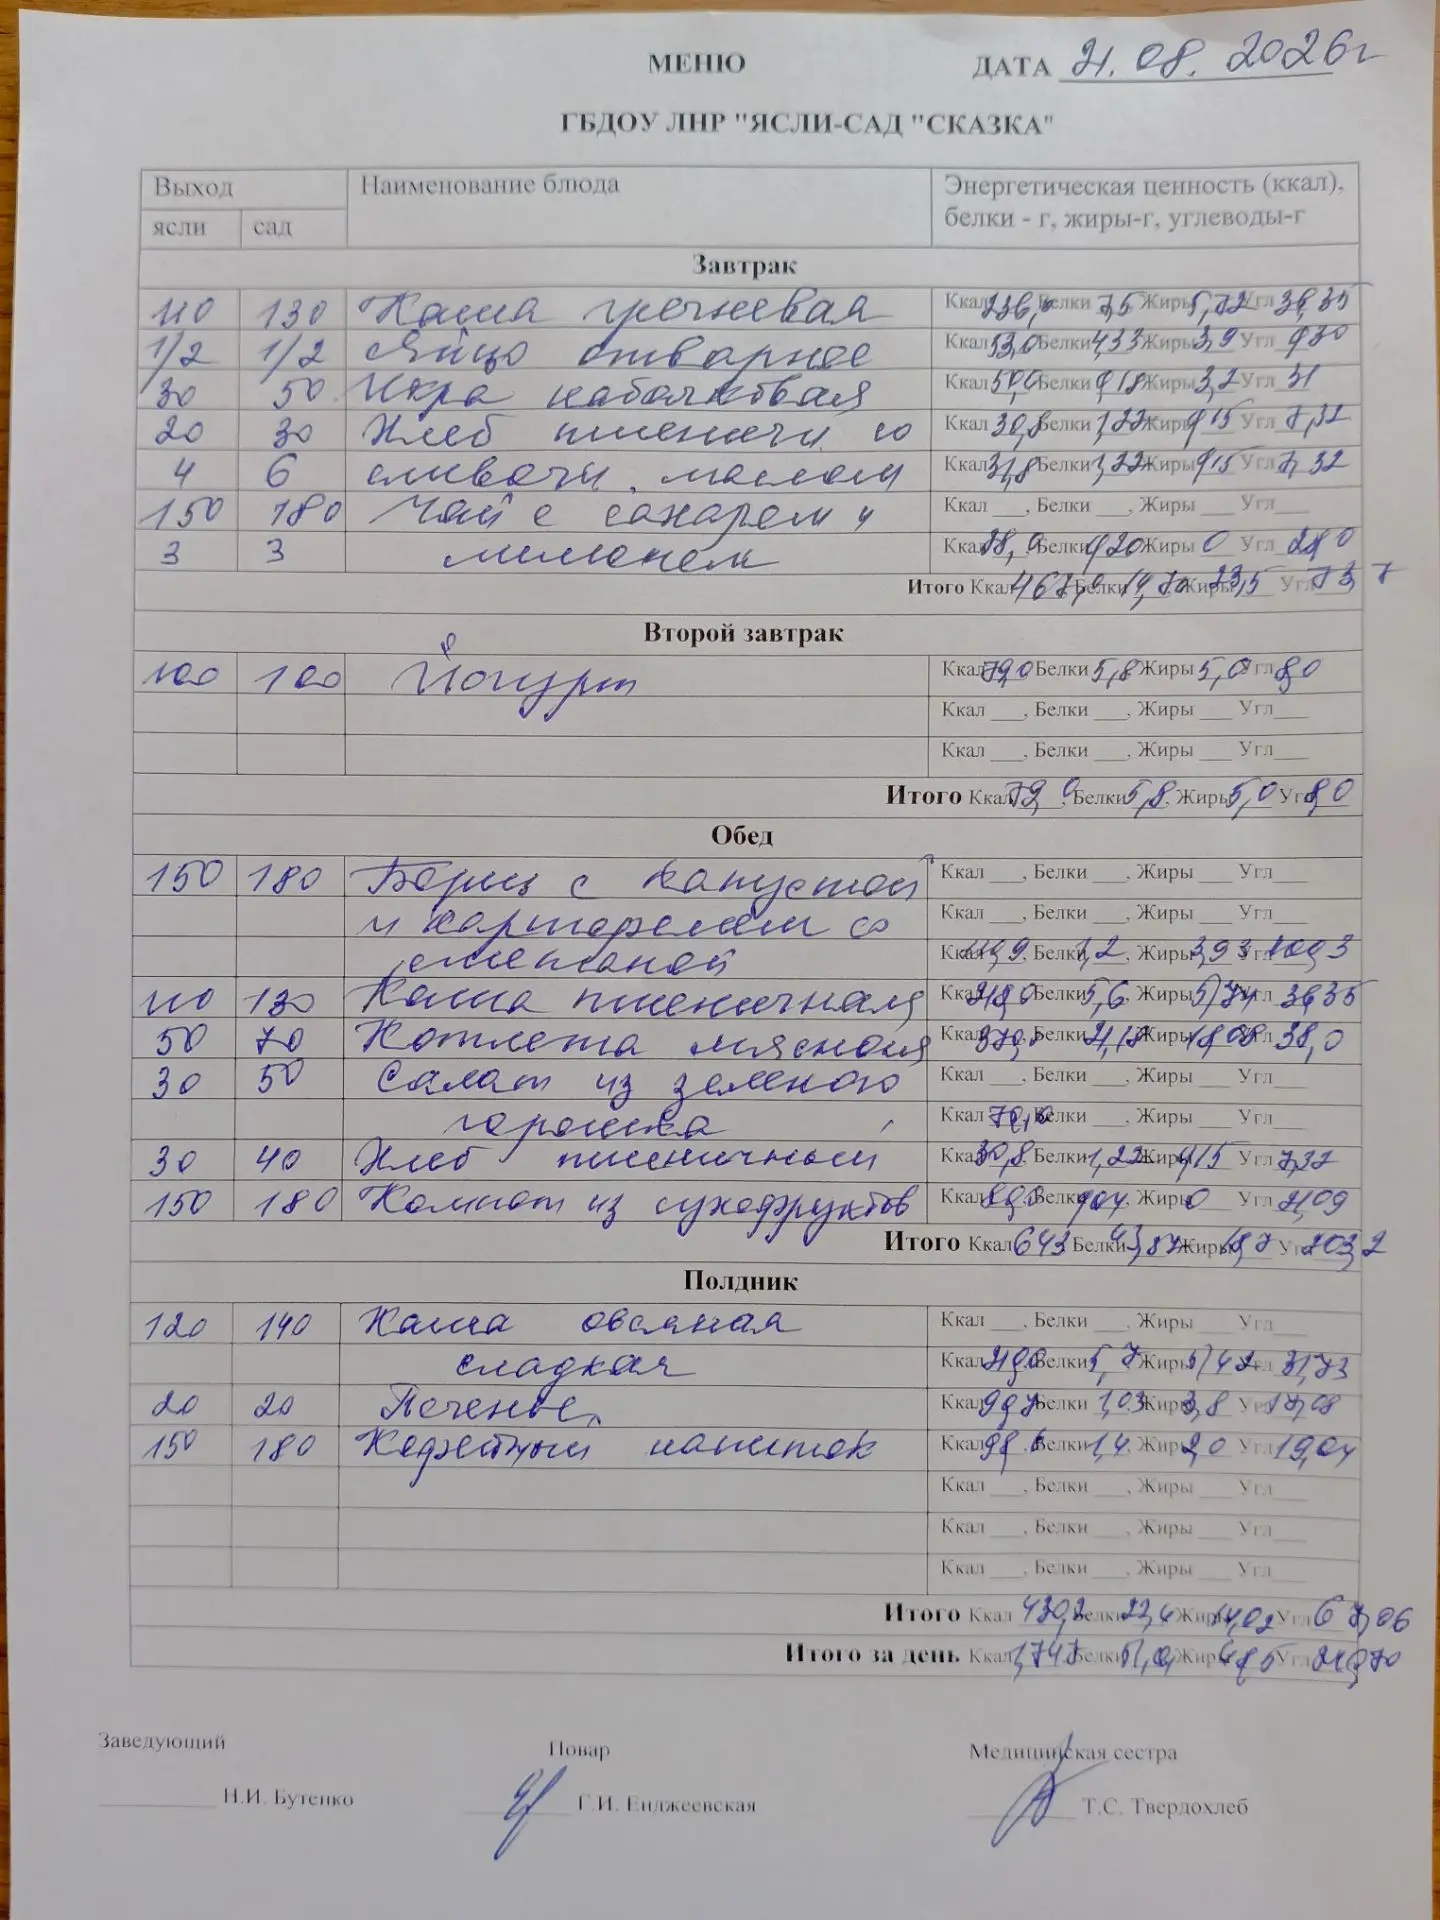 МЕНЮ ДАТА 21.08.2026г
ГБДОУ ЛНР "ЯСЛИ-САД "СКАЗКА"
Выход Наименование блюда Энергетическая ценность (ккал),
ясли сад белки - г, жиры-г, углеводы-г
Завтрак
110 130 Каша гречневая Ккал Белки 7,5 Жиры 5,72 36,35
1/2 1/2 Яйцо отварное Ккал 53,0 Белки 4,33 Жиры 3,9 Угл 0,30
30 50 Икра кабачковая Ккал Белки 0,18 Жиры 3,2 Угл 31
20 30 Хлеб пшеничн со Ккал 30,8 Белки 1,22 Жиры 0,15 Угл 7,32
4 6 сливочн. маслом Ккал 31,8 Белки 1,22 Жиры 0,15 Угл 7,32
150 180 Чай с сахарем и Ккал ___, Белки ___, Жиры ___ Угл___
3 3 лимонем Ккал Белки 0,20 Жиры 0 Угл
Итого Ккал Белки Жиры 23,5 Угл 73,7
Второй завтрак
100 100 Йогурт Ккал 79,0 Белки 5,8 Жиры 5,0 Угл 8,0
Ккал ___, Белки ___, Жиры ___ Угл___
Ккал ___, Белки ___, Жиры ___ Угл___
Итого Ккал 79,0, Белки 5,8, Жиры 5,0 Угл 8,0
Обед
150 180 Борщ с капустой Ккал ___, Белки ___, Жиры ___ Угл___
и картофелем со Ккал ___, Белки ___, Жиры ___ Угл___
сметаной Ккал Белки 1,2, Жиры 3,93 Угл
110 130 Каша пшеничная Ккал Белки 5,6 Жиры 5,74 Угл 36,35
50 70 Котлета мясная Ккал Белки Жиры 18,08 Угл 38,0
30 50 Салат из зеленого Ккал ___, Белки ___, Жиры ___ Угл___
горошка Ккал Белки ___, Жиры ___ Угл___
30 40 Хлеб пшеничный Ккал 30,8 Белки 1,22 Жиры 0,15 Угл 7,32
150 180 Компот из сухофруктов Ккал Белки Жиры 0 Угл 21,09
Итого Ккал 643 Белки 43,87 Жиры 18,7 Угл 203,2
Полдник
120 140 Каша овсяная Ккал ___, Белки ___, Жиры ___ Угл___
сладкая Ккал Белки 5,7 Жиры 5,42 Угл 31,73
20 20 Печенье Ккал Белки 1,03 Жиры 3,8 Угл 17,08
150 180 Кофейный напиток Ккал Белки 1,4 Жиры 2,0 Угл 19,04
Ккал ___, Белки ___, Жиры ___ Угл___
Ккал ___, Белки ___, Жиры ___ Угл___
Ккал ___, Белки ___, Жиры ___ Угл___
Итого Ккал 430,2 Белки 22,4 Жиры 14,02 Угл 67,06
Итого за день Ккал 1,747 Белки Жиры 48,5 Угл
Заведующий Повар Медицинская сестра
Н.И. Бутенко Г.И. Енджеевская Т.С. Твердохлеб